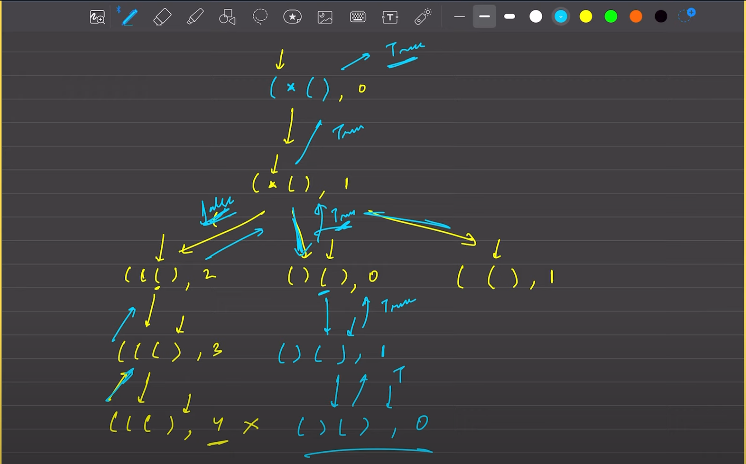 True
(*(), 0
True
(*(), 1
False
True
(((), 2
()(), 0
( (), 1
True
(((), 3
()(), 1
T
(((), 4 ×
()(), 0